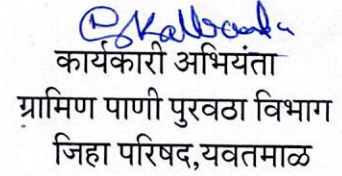 कार्यकारी अभियंता
ग्रामिण पाणी पुरवठा विभाग
जिहा परिषद,यवतमाळ